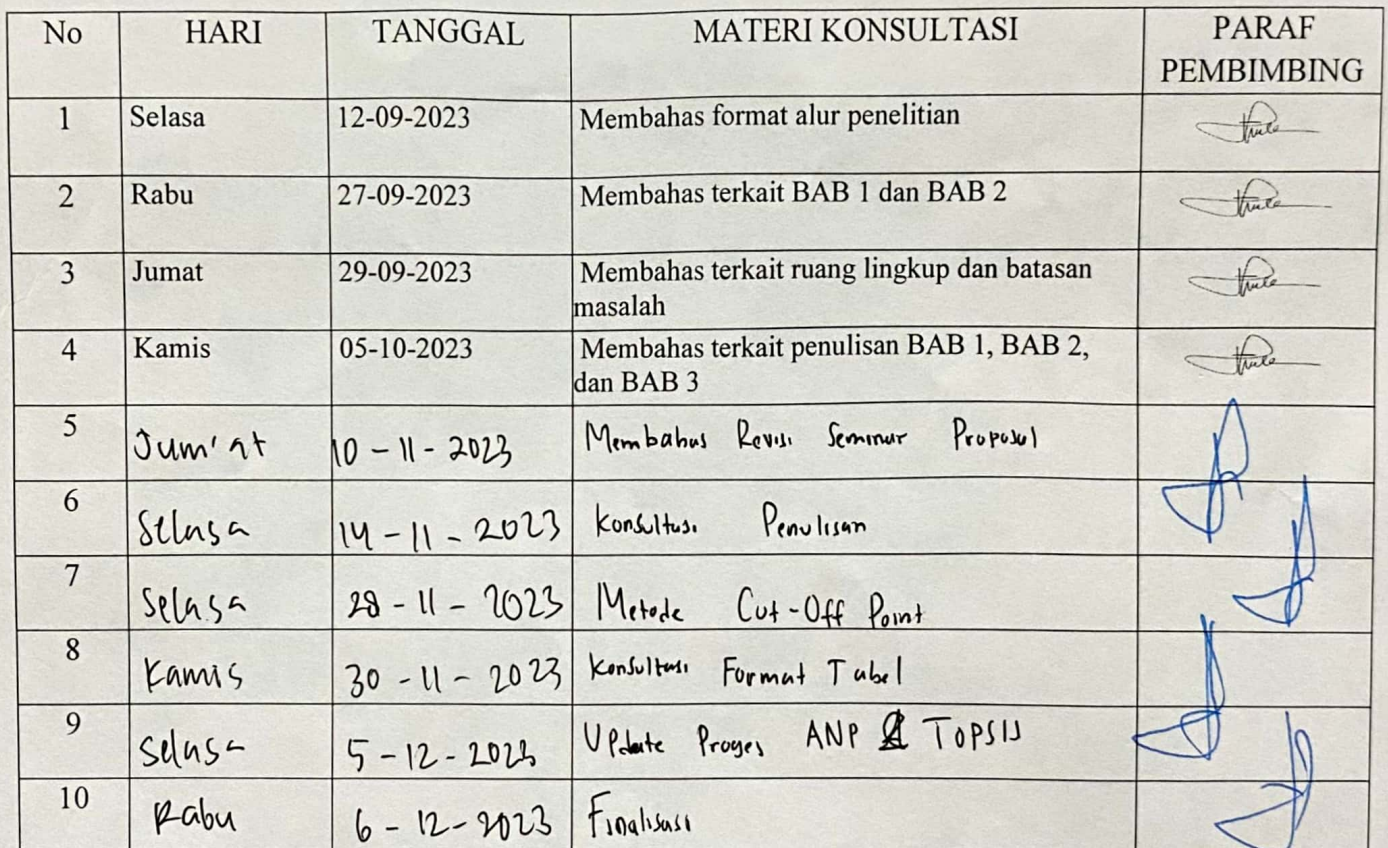 No HARI TANGGAL MATERI KONSULTASI PARAF
PEMBIMBING
1 Selasa 12-09-2023 Membahas format alur penelitian
2 Rabu 27-09-2023 Membahas terkait BAB 1 dan BAB 2
3 Jumat 29-09-2023 Membahas terkait ruang lingkup dan batasan
masalah
4 Kamis 05-10-2023 Membahas terkait penulisan BAB 1, BAB 2,
dan BAB 3
5 Jum'at 10-11-2023 Membahas Revisi Seminar Proposal
6 Selasa 14-11-2023 Konsultasi Penulisan
7 Selasa 28-11-2023 Metode Cut-Off Point
8 Kamis 30-11-2023 Konsultasi Format Tabel
9 Selasa 5-12-2023 Update Proges ANP & TOPSIS
10 Rabu 6-12-2023 Finalisasi